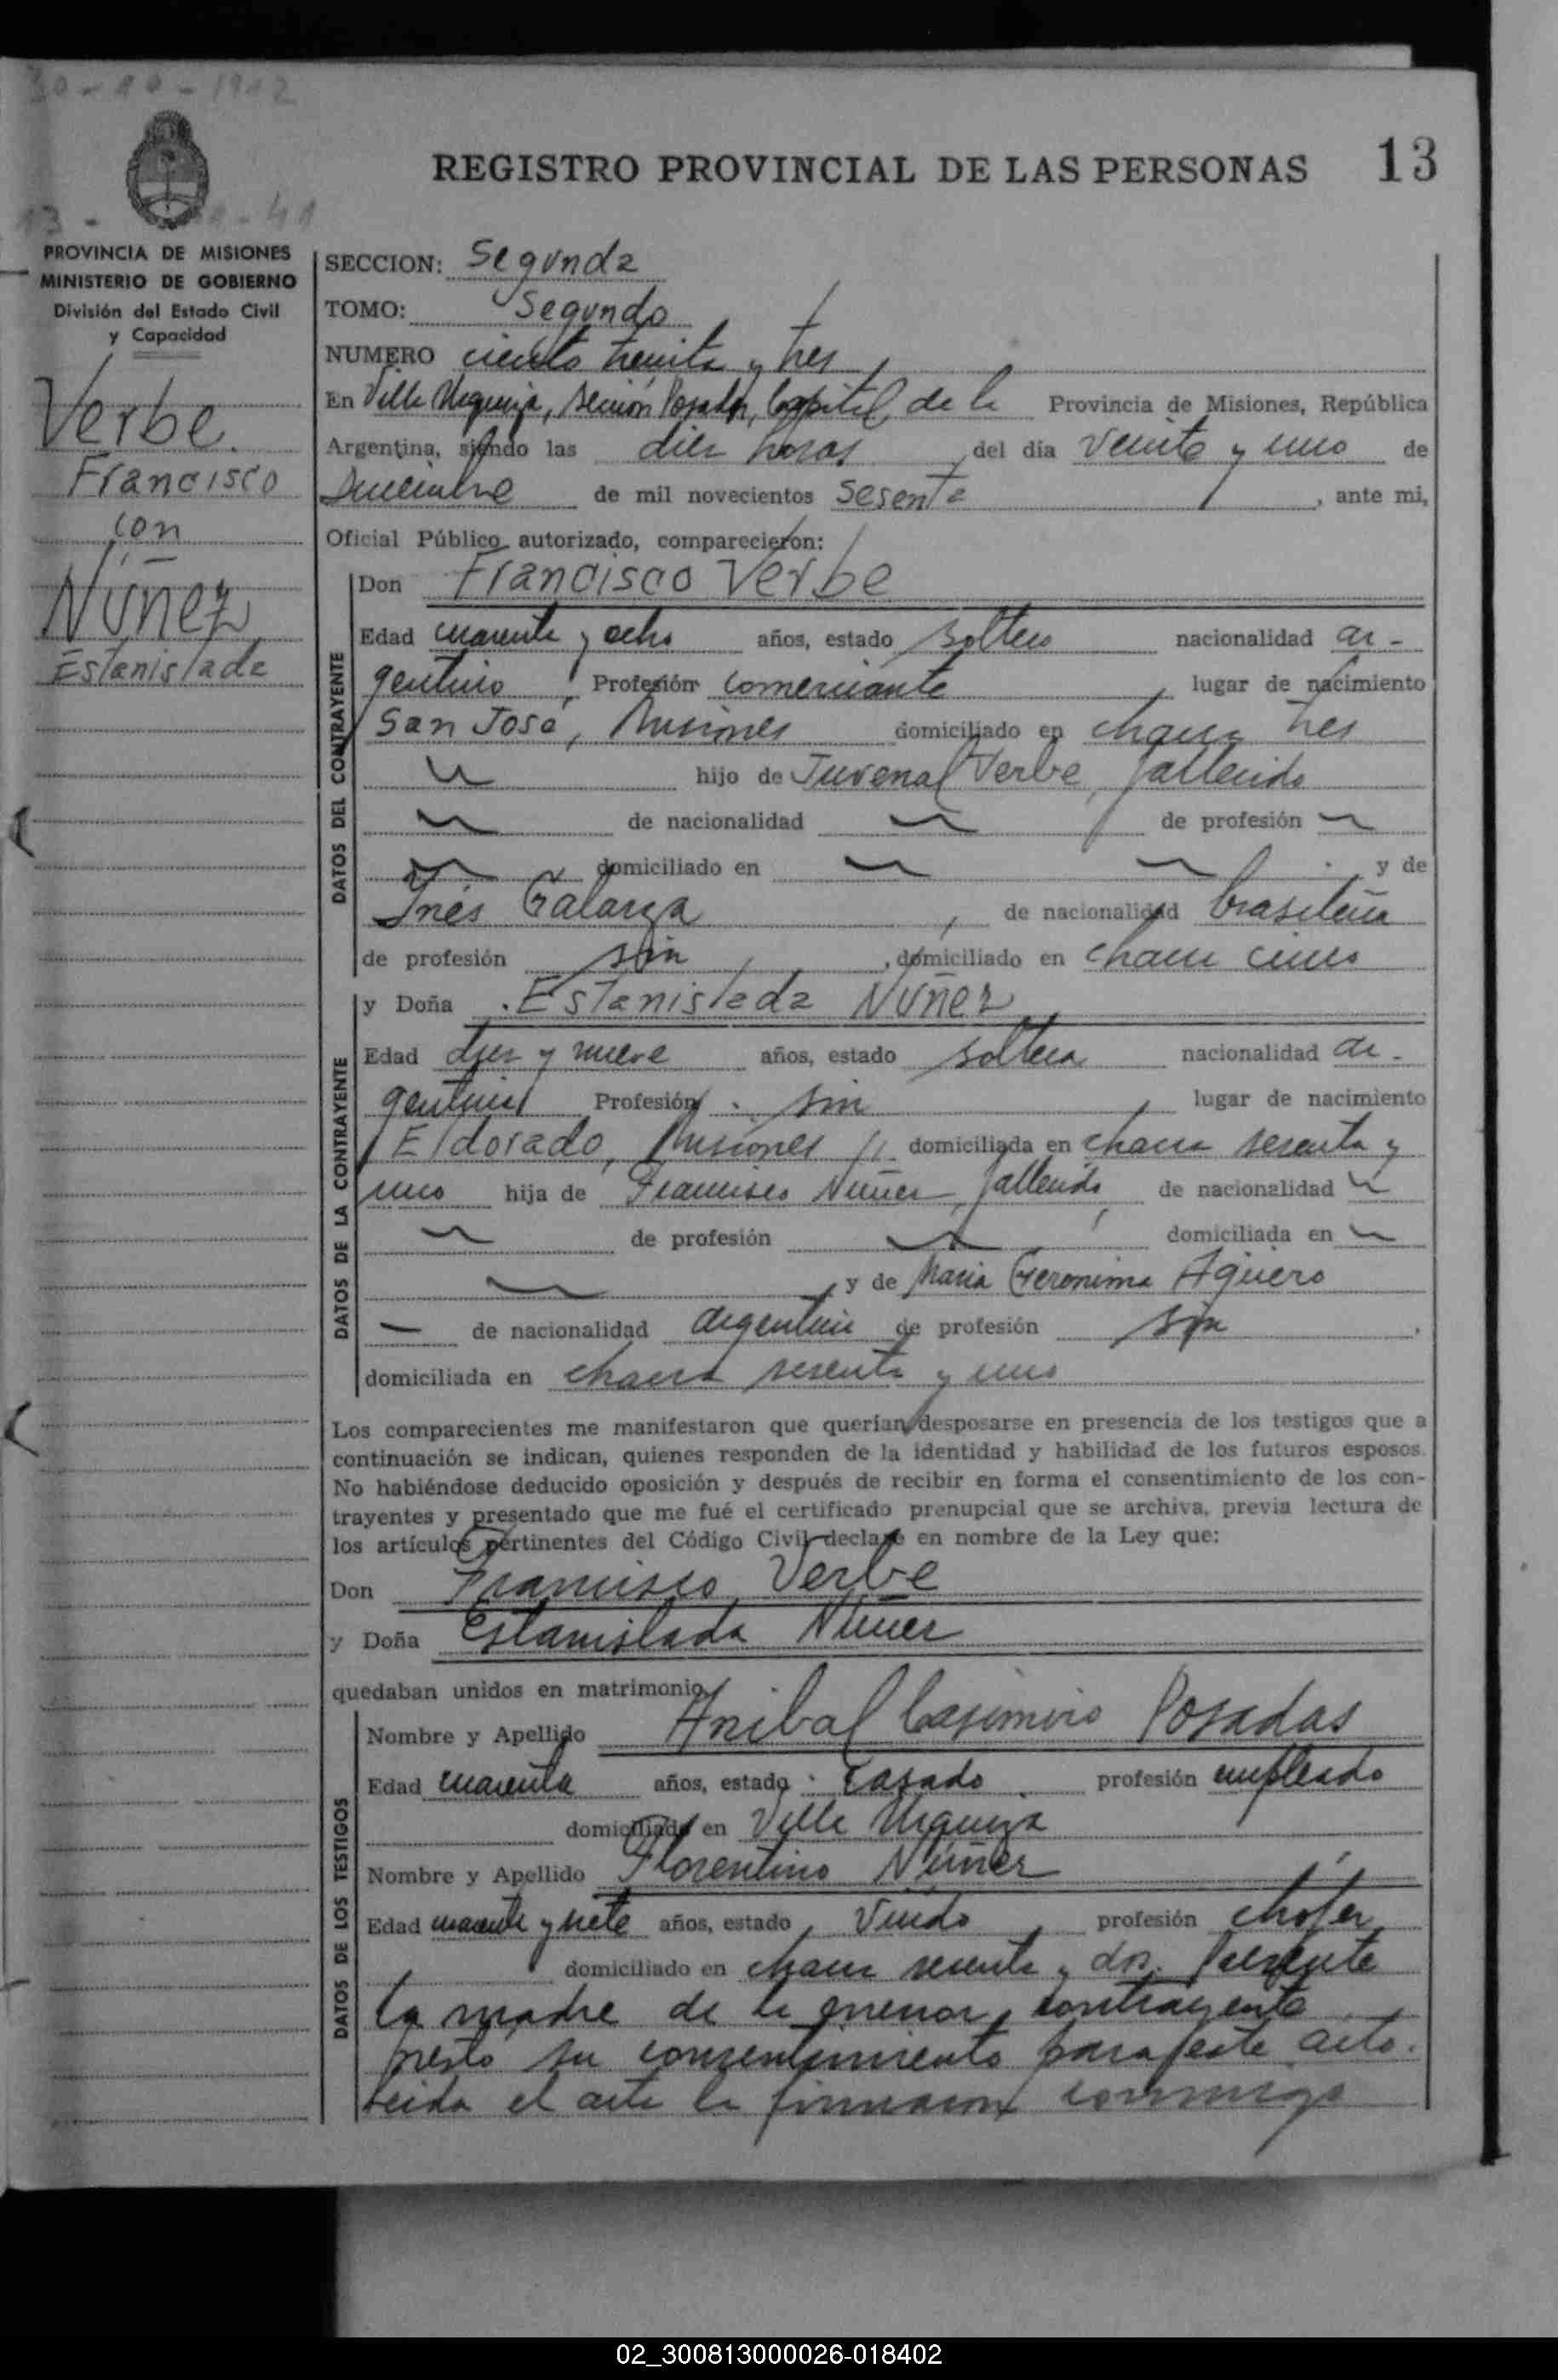 30-10-1912
REGISTRO PROVINCIAL DE LAS PERSONAS 13
13 - -41
PROVINCIA DE MISIONES
MINISTERIO DE GOBIERNO
División del Estado Civil
y Capacidad
Verbe
Francisco
con
Núñez
Estanislada
SECCION: Segunda
TOMO: Segundo
NUMERO ciento treinta y tres
En Villa Urquiza, sección Posadas, Capital de la Provincia de Misiones, República
Argentina, siendo las diez horas, del día veinte y uno de
Diciembre de mil novecientos sesenta, ante mi,
Oficial Público autorizado, comparecieron:
DATOS DEL CONTRAYENTE
Don Francisco Verbe
Edad cuarenta y ocho años, estado soltero nacionalidad ar-
gentino, Profesión comerciante, lugar de nacimiento
San José, Misiones domiciliado en chacra tres
hijo de Juvenal Verbe, fallecido
de nacionalidad de profesión
domiciliado en y de
Inés Galarza, de nacionalidad brasileña
de profesión sin, domiciliado en chacra cinco
DATOS DE LA CONTRAYENTE
y Doña Estanislada Núñez
Edad diez y nueve años, estado soltera nacionalidad ar-
gentina Profesión sin, lugar de nacimiento
Eldorado, Misiones domiciliada en chacra sesenta y
uno hija de Francisco Núñez, fallecido, de nacionalidad
de profesión domiciliada en
, y de Maria Geronima Agüero
de nacionalidad argentina de profesión sin
domiciliada en chacra sesenta y uno
Los comparecientes me manifestaron que querían desposarse en presencia de los testigos que a
continuación se indican, quienes responden de la identidad y habilidad de los futuros esposos.
No habiéndose deducido oposición y después de recibir en forma el consentimiento de los con-
trayentes y presentado que me fué el certificado prenupcial que se archiva, previa lectura de
los artículos pertinentes del Código Civil declaro en nombre de la Ley que:
Don Francisco Verbe
y Doña Estanislada Núñez
quedaban unidos en matrimonio,
DATOS DE LOS TESTIGOS
Nombre y Apellido Anibal Casimiro Posadas
Edad cuarenta años, estado casado profesión empleado
domiciliado en Villa Urquiza
Nombre y Apellido Florentino Núñez
Edad cuarenta y siete años, estado, viudo, profesión chofer,
domiciliado en chacra sesenta y dos. Presente
la madre de la menor contrayente
presto su consentimiento para este acto.
Leida el acta la firmaron conmigo
02_300813000026-018402